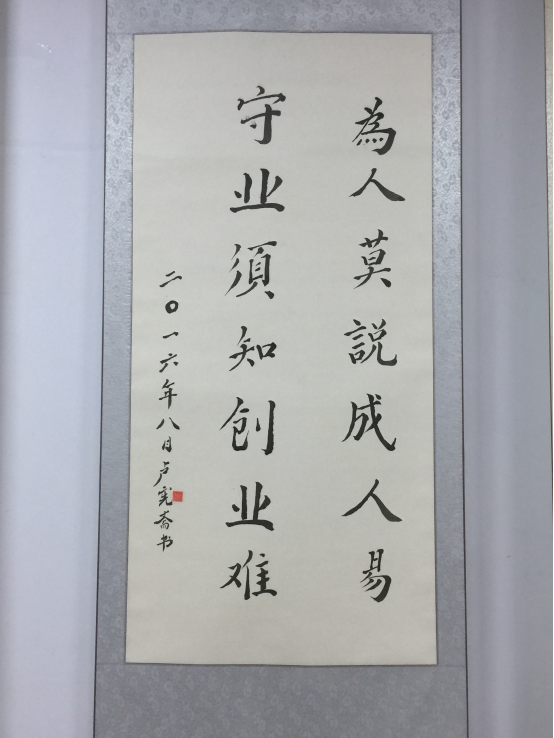 為人莫説成人易
守业須知创业难
二〇一六年八日卢斋书